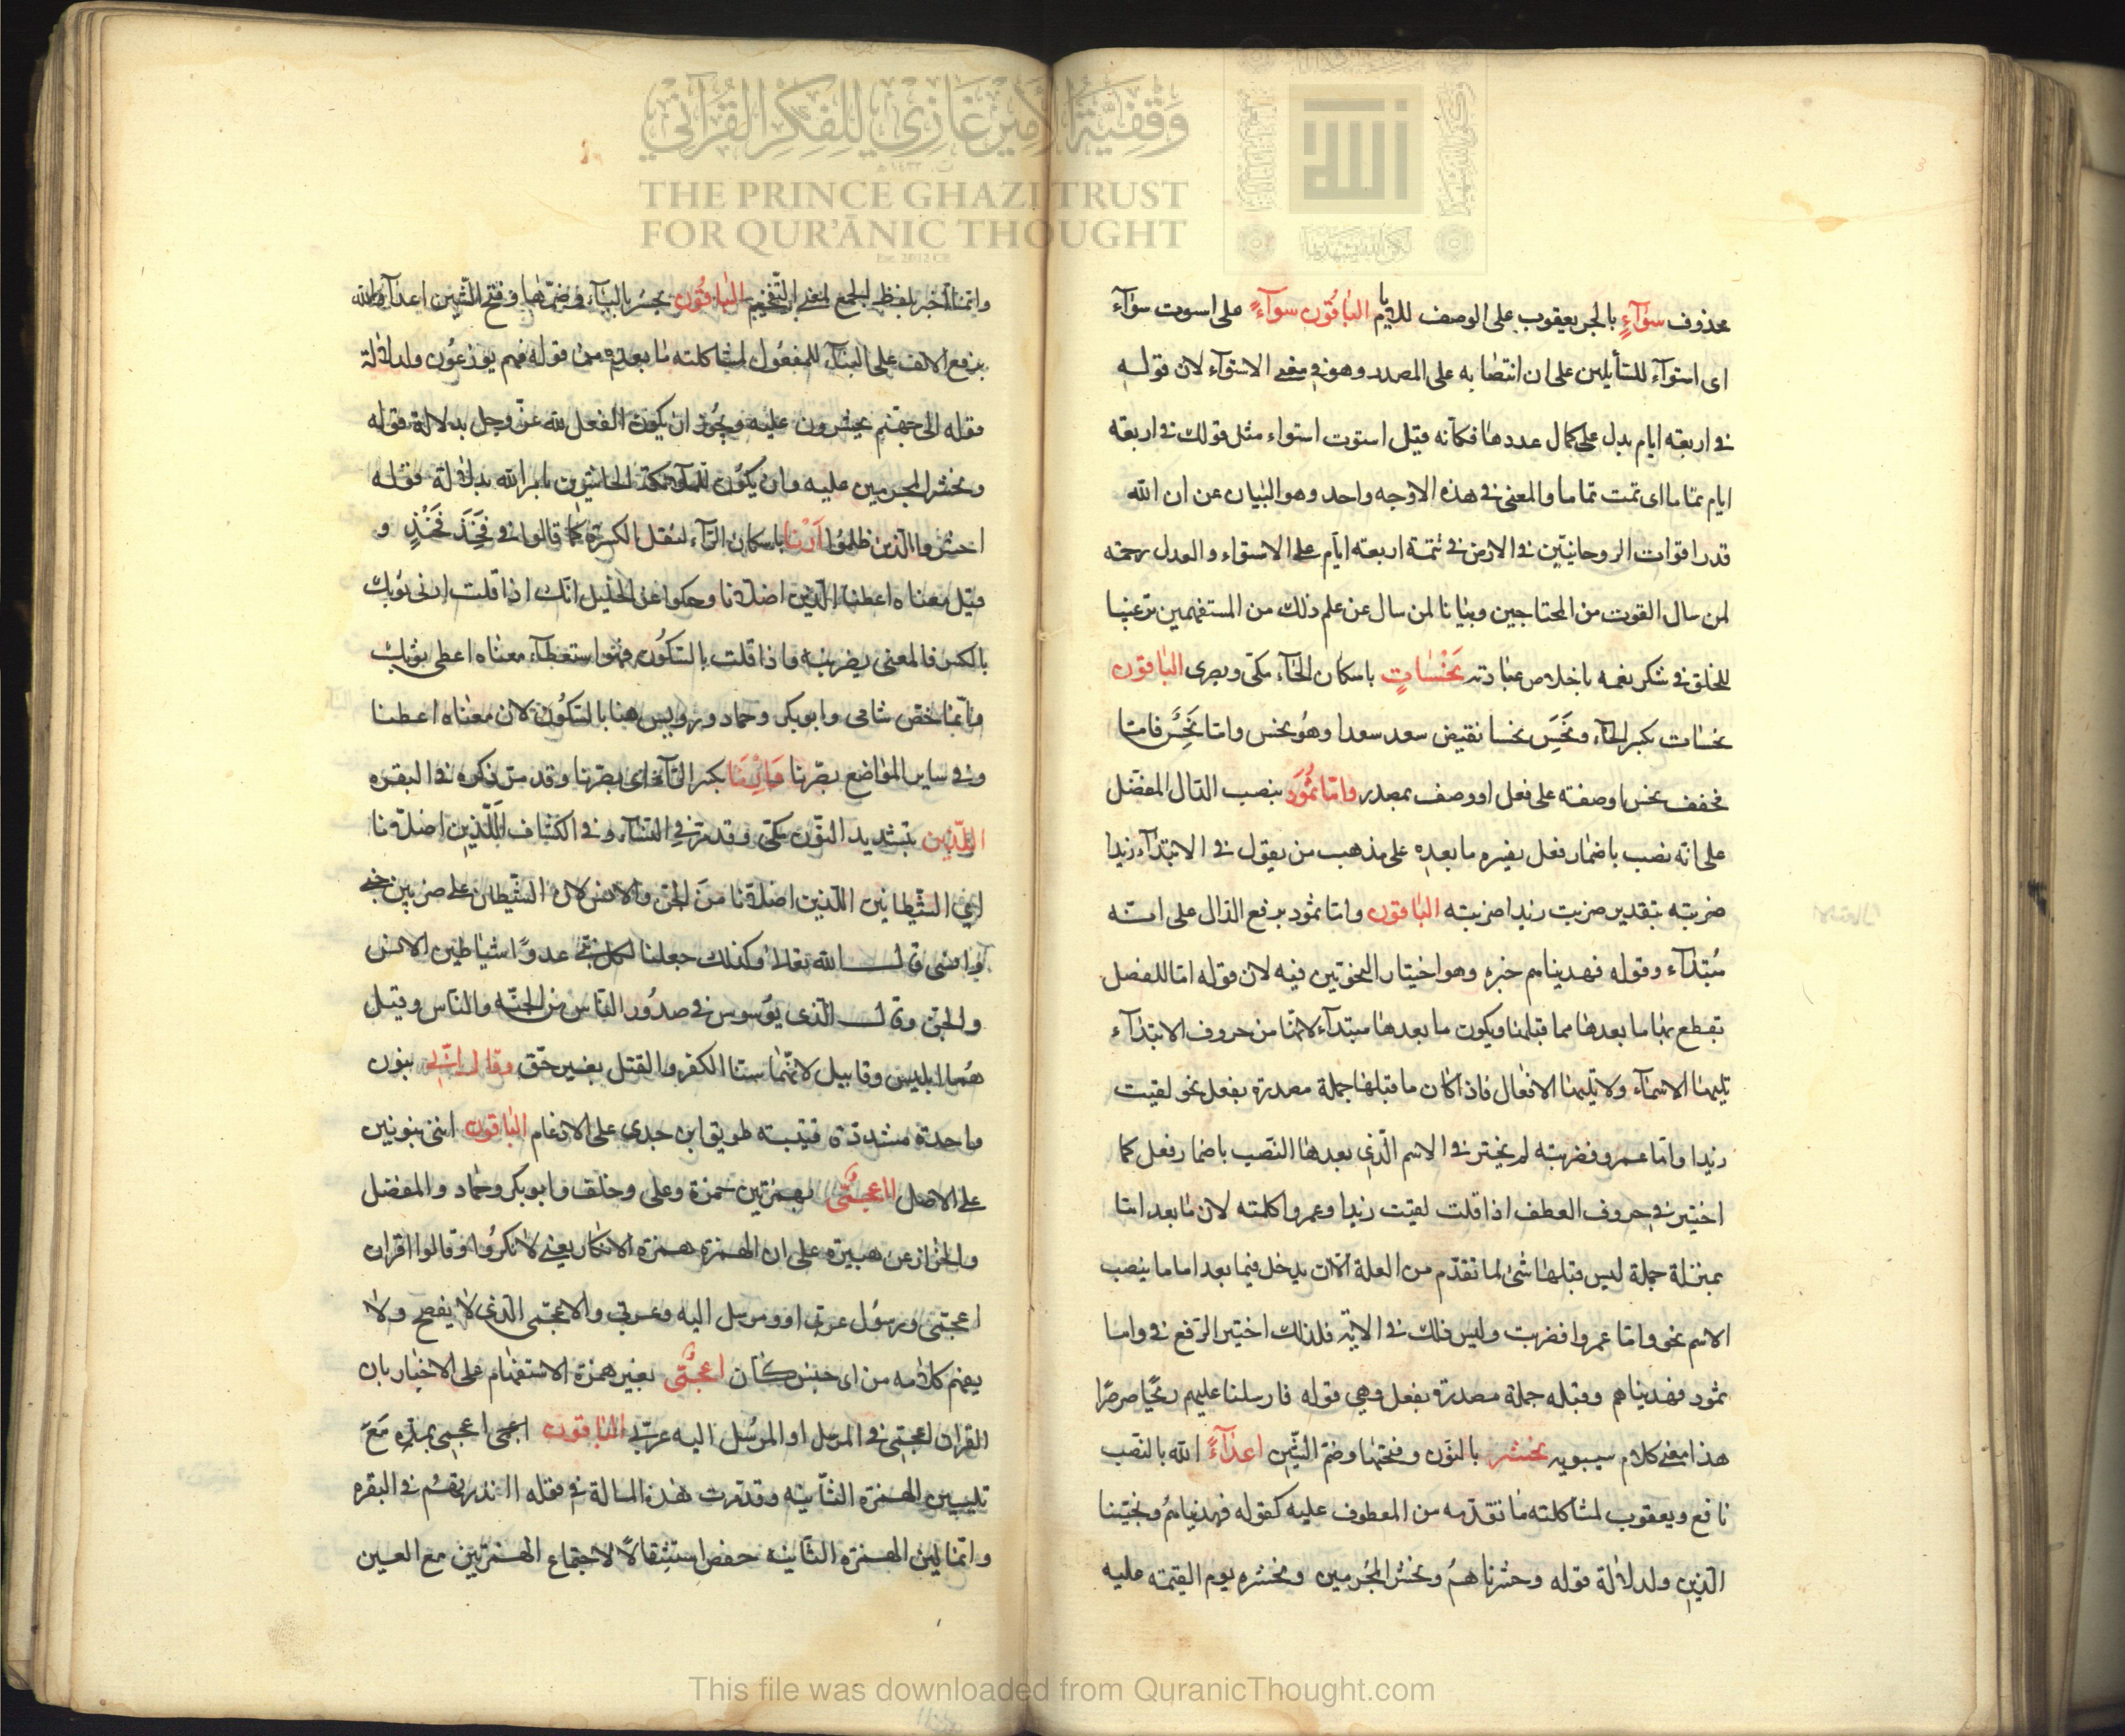 محذوف سوآءٍ بالجر يعقوب على الوصف للايام الباقون سوآءً على اسوت سوآء
اى استوآء للسآيلين على ان انتصابه على المصدر وهو في معنى الاستوآء لان قوله
في اربعة ايام يدل على كمال عددها فكانه قيل استوت استواء مثل قولك في اربعة
ايام تماما اى تمت تماما والمعنى في هذه الاوجه واحد وهو البيان عن ان الله
قدر اقوات الروحانيين في الارض في تتمة اربعة ايام على الاستواء والعدل رحمة
لمن سال القوت من المحتاجين وبيانا لمن سال عن علم ذلك من المستفهمين ترغيبا
للخلق في شكر نعمه باخلاص عبادته نَحْسَاتٍ باسكان الحاء مكى وبصرى الباقون
نحسات بكسر الحآء ونَحِسَ نحسا نقيض سعد سعدا وهو نحس واما نَحْسٌ فاما
مخفف نحس او صفة على فعل او وصف بمصدر واما ثمُودَ بنصب الدال المفضل
على انه نصب باضمار فعل يفسره ما بعده على مذهب من يقول في الابتدآء زيدا
ضربته بتقدير ضربت زيدا ضربته الباقون واما ثمود برفع الدال على انه
مُبتدآء وقوله فهديناهم خبره وهو اختيار النحويين فيه لان قوله اما للفصل
تقطع بها ما بعدها مما قبلها ويكون ما بعدها مبتدآء لانها من حروف الابتدآء
تليها الاسمآء ولا تليها الافعال فاذا كان ما قبلها جملة مصدرة بفعل نحو لقيت
زيدا واما عمرو فضربته لم يختر في الاسم الّذي بعدها النّصب باضمار فعل كما
اختير في حروف العطف اذا قلت لقيت زيدا وعمروا كلمته لان ما بعد اما
بمنزلة جملة ليس قبلها شئ لما تقدّم من العلة الّا ان يدخل فيما بعد اما ما ينصب
الاسم نحو واما عمروا فضربت وليس ذلك في الاية فلذلك اختير الرّفع في واما
ثمود فهديناهم وقبله جملة مصدرة بفعل وهي قوله فارسلنا عليهم ريحًا صرصرًا
هذا معنى كلام سيبويه نحشر بالنون وفتحها وضم الشّين اعدآءً الله بالنصب
نافع ويعقوب لمشاكلته ما تقدّمه من المعطوف عليه كقوله فهديناهُم ونجّينا
الّذين ولدلالة قوله وحشرناهمُ ونحشر المجُرمين ونحشره يوم القيمة عليه
وانما اخبر بلفظ الجمع لمعنى التّفخيم الباقُون يحشر باليآء وضمّها وفتح الشين اعدآء الله
برفع الالف على البنآء للمفعُول لمشاكلته ما بعده من قوله فهم يوزعُون ولدلالة
قوله الى جهنم يحشرون عليه ويجُوز ان يكون الفعل لله عزّ وجل بدلالة قوله
ونحشر المجرمين عليه وان يكون للملآئكة الحاشرين بامر الله بدلالة قوله
احشروا الّذين ظلمُوا اَرْنَا باسكان الرّآء لثقل الكسرة كما قالوا في فَخِذَ فَخْذٍ و
قيل معناه اعطنا الّذين اضلّانا وحكوا عن الخليل انّك اذا قلت ارنى ثوبك
بالكسر فالمعنى بصّرنيه واذا قلت بالسّكُون فهوا ستعطآء معناه اعطنى ثوبك
وانما خصّ شامى وابوبكر وحماد ورويس هنا بالسّكُون لان معناه اعطنا
وفي ساير المواضع بصّرنا وَاَرِنَا بكسر الرّآء اى بصّرنا وقد مرّ ذكره في البقره
اللّذين بتشديد النّون مكى وقد مرّ في النّسآء وفي الكشاف اللّذين اضلّونا
اي الشّيطانين اللّذين اضلّانا منَ الجن والانس لان الشّيطان على ضربين جنى
وانسى قال الله تعالى وكذلك جعلنا لكل نبى عدوّا شياطين الانس
والجن وقال الّذى يوّسوس في صدُور النّاس من الجنّه والنّاس وقيل
هُما ابليس وقابيل لانّهما سنا الكفر والقتل بغير حقّ وقال انّنى بنون
واحدة مشددة قتيبة طريق ابن جدى على الادغام الباقون اننى بنونين
على الاصل ااعجمّى بهمزتين حمزة وعلى وخلف وابوبكر وحمّاد والمفضل
والخزاز عن هبيرة على ان الهمزة همزة الانكار يعنى لانكرُوا وقالوا اقران
اعجمّى ورسُول عربى او ومرسل اليه وعربي والاعجمّى الّذى لا يفصح ولا
يفهم كلامه من اى جنس كان اعجمّى بغير همزة الاستفهام على الاخبار بان
القران اعجمى في المرسل او المرسُل اليه عربّي الباقون اعجمى اعجمى بمدّه مَعَ
تليين الهمزة الثّانيه وقد مرت هذه المسالة في قوله اانذرتهمُ في البقره
وانما ليّن الهمزة الثّانية حفص استثقالًا لاجتماع الهمزتين مع العين
وَقْفِيَّةُ الأَمِيرْ غَازِي لِلْفِكْرِ القُرْآنِي
THE PRINCE GHAZI TRUST
FOR QUR'ĀNIC THOUGHT
Est. 2012 CE
This file was downloaded from QuranicThought.com